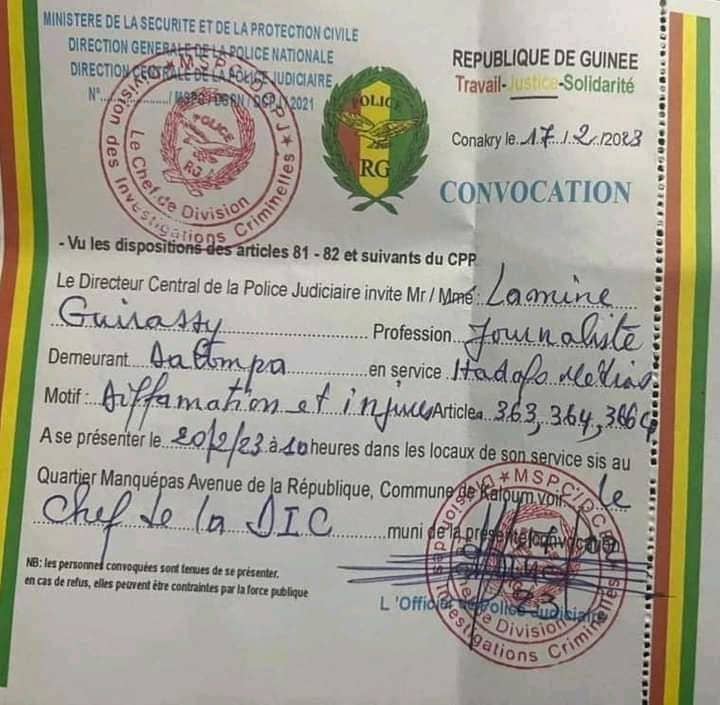 MINISTERE DE LA SECURITE ET DE LA PROTECTION CIVILE
DIRECTION GENERALE DE LA POLICE NATIONALE
DIRECTION CENTRALE DE LA POLICE JUDICIAIRE
N°............/MSPC/DGPN/DCPJ/2021
MSPC/DCPJ
Le Chef de Division
des Investigations Criminelles
POLICE
RG
POLICE
RG
REPUBLIQUE DE GUINEE
Travail-Justice-Solidarité
Conakry le 17/2/2023
CONVOCATION
- Vu les dispositions des articles 81 - 82 et suivants du CPP
Le Directeur Central de la Police Judiciaire invite Mr / Mme: Lamine
Guirassy Profession Journaliste
Demeurant en service Hadafo Médias
Motif : Diffamation et injures Articles 363, 364,
A se présenter le 20/2/23 à 10 heures dans les locaux de son service sis au
Quartier Manquépas Avenue de la République, Commune de Kaloum voir le
Chef de la DIC muni de la présente convocation
NB: les personnes convoquées sont tenues de se présenter.
en cas de refus, elles peuvent être contraintes par la force publique
L 'Officier de Police Judiciaire
MSPC/DCPJ
Division
Investigations Criminelles